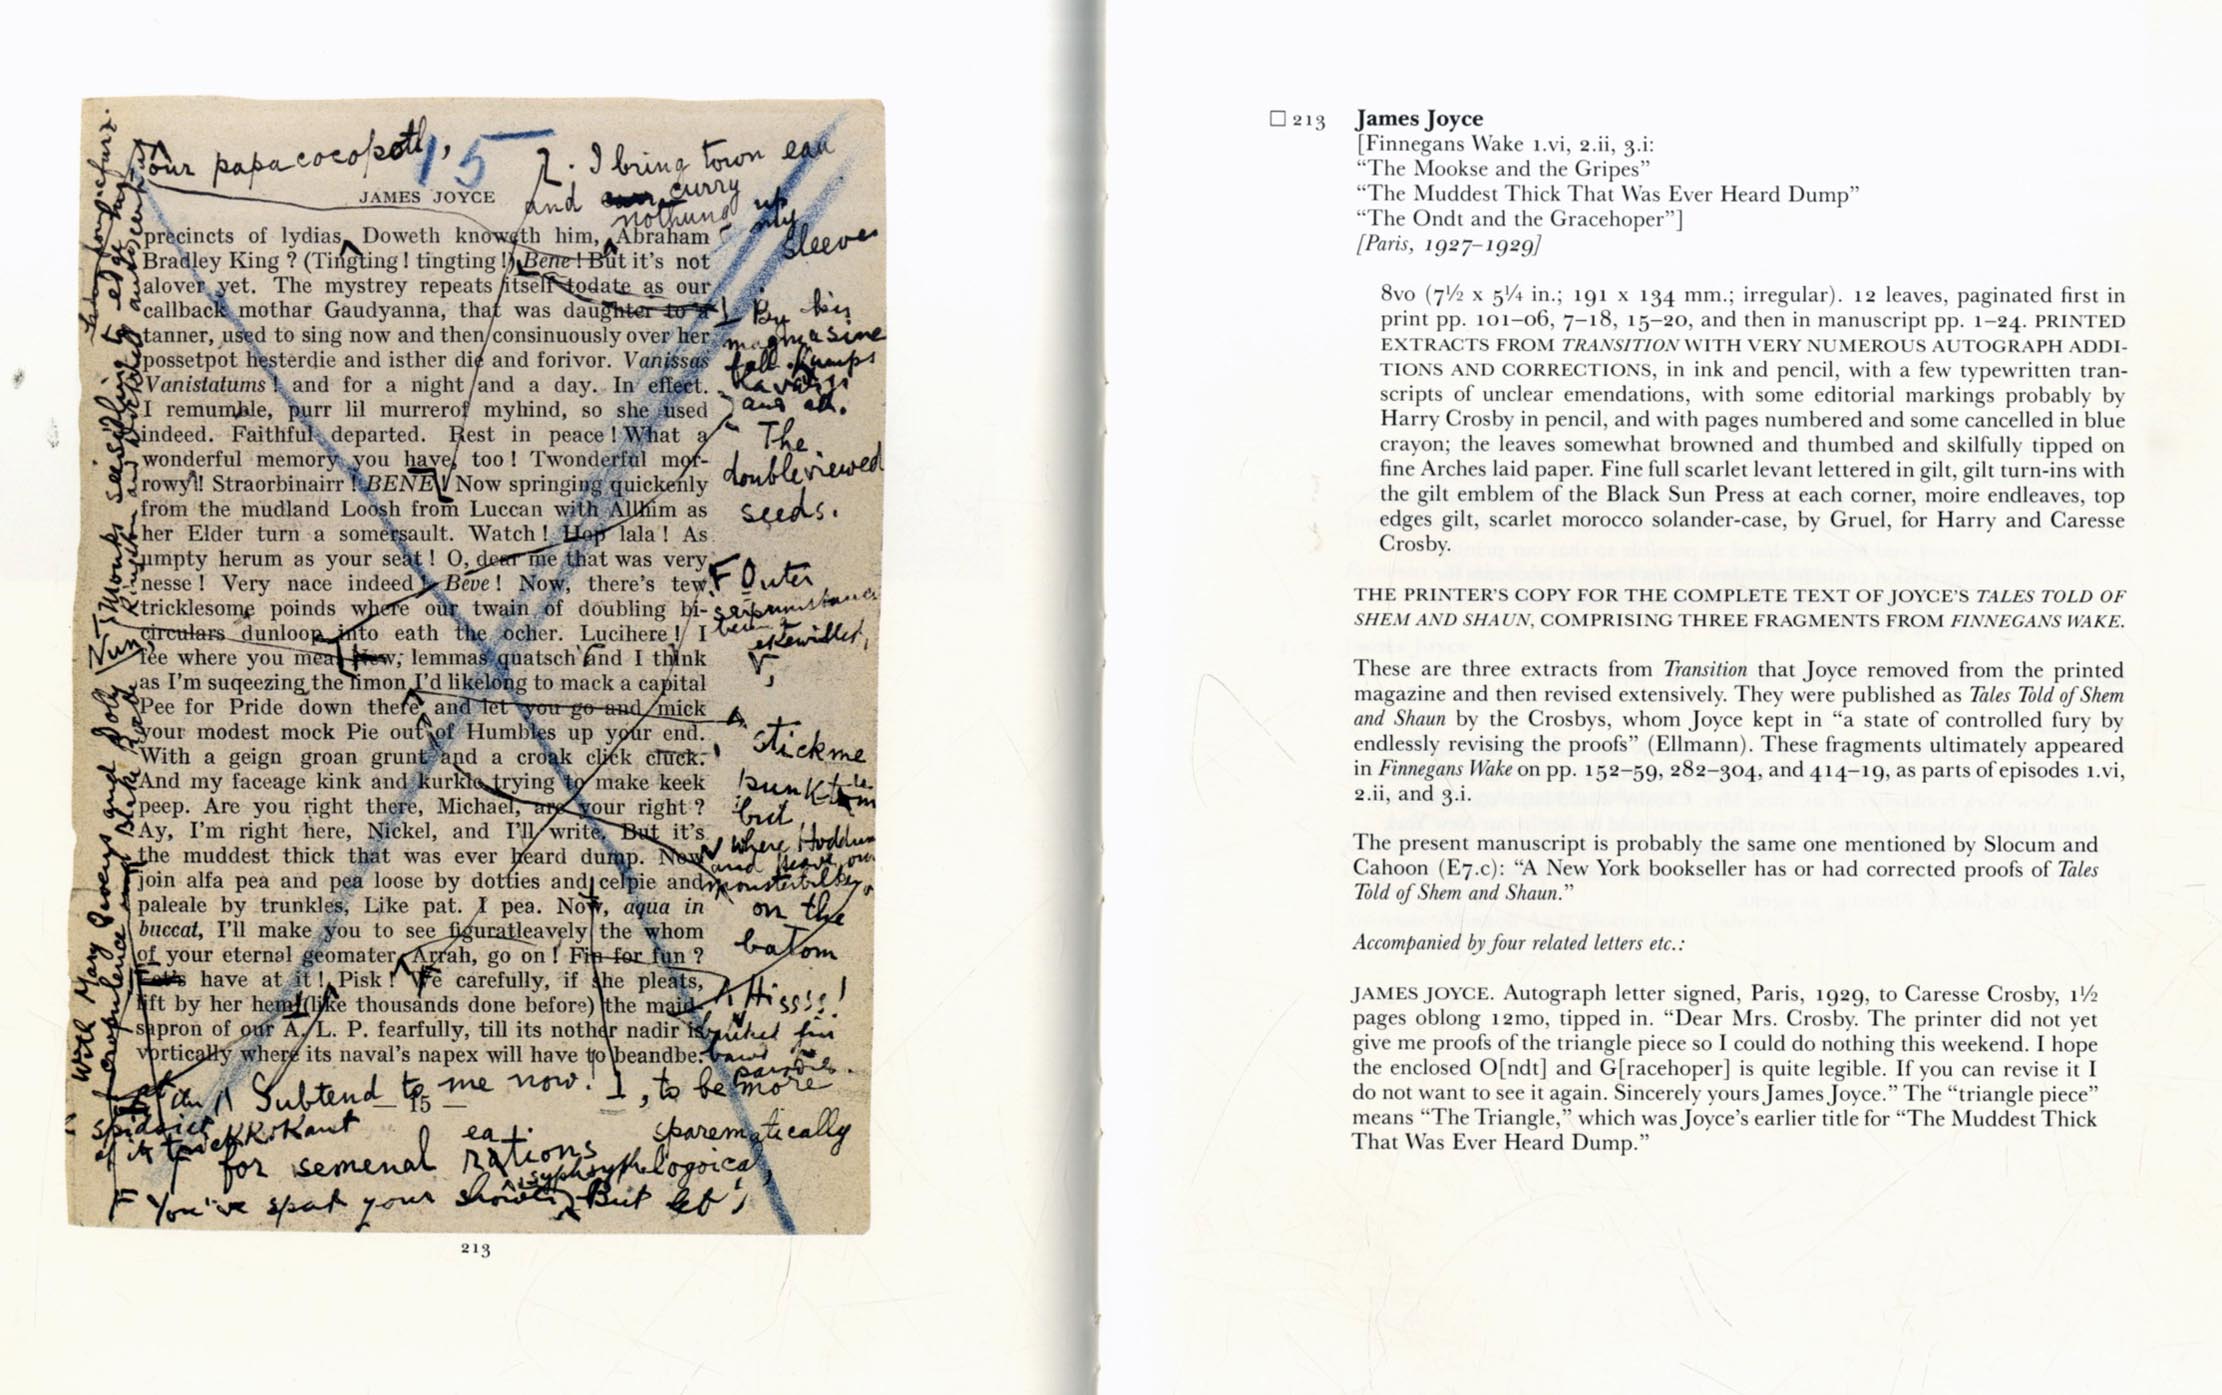 our papacocopotl,
15
7. I bring town eau
and curry
nothung up
my
sleeves
JAMES JOYCE
precincts of lydias, Doweth knoweth him, Abraham
Bradley King ? (Tingting ! tingting !) Bene ! But it's not
alover yet. The mystrey repeats itself todate as our
callback mothar Gaudyanna, that was daughter to a
tanner, used to sing now and then consinuously over her
possetpot hesterdie and isther die and forivor. Vanissas
Vanistatums ! and for a night and a day. In effect.
I remumble, purr lil murrerof myhind, so she used
indeed. Faithful departed. Rest in peace ! What a
wonderful memory you have, too ! Twonderful mor-
rowy ! Straorbinairr ! BENE ! Now springing quickenly
from the mudland Loosh from Luccan with Allhim as
her Elder turn a somersault. Watch ! Hop lala ! As
umpty herum as your seat ! O, dear me that was very
nesse ! Very nace indeed ! Beve ! Now, there's tew
tricklesome poinds where our twain of doubling bi-
circulars dunloop into eath the ocher. Lucihere ! I
fee where you mea. New, lemmas quatsch and I think
as I'm suqeezing the limon I'd likelong to mack a capital
Pee for Pride down there and let you go and mick
your modest mock Pie out of Humbles up your end.
With a geign groan grunt and a croak click cluck.
And my faceage kink and kurkle trying to make keek
peep. Are you right there, Michael, are your right ?
Ay, I'm right here, Nickel, and I'll write. But it's
the muddest thick that was ever heard dump. Now
join alfa pea and pea loose by dotties and celpie and
paleale by trunkles, Like pat. I pea. Now, aqua in
buccat, I'll make you to see figuratleavely the whom
of your eternal geomater. Arrah, go on ! Fin for fun ?
Let's have at it ! Pisk ! We carefully, if she pleats,
lift by her hem (like thousands done before) the maid-
sapron of our A. L. P. fearfully, till its nother nadir is
vortically where its naval's napex will have to beandbe.
By his
magmasine
fall. Kumps
and all.
The
doubleviewed
seeds.
Outer
serpumstances
being
ekewilled,
stickme
punktum
but
where Hoddum
and Heave, our
monsterbilker,
on the
batom
Hissss!
Subtend to me now!
— 15 —
, to be more
sparematically
for semenal rations
You've spat your shower
But let,
213
□ 213 James Joyce
[Finnegans Wake 1.vi, 2.ii, 3.i:
“The Mookse and the Gripes”
“The Muddest Thick That Was Ever Heard Dump”
“The Ondt and the Gracehoper”]
[Paris, 1927–1929]
8vo (7½ x 5¼ in.; 191 x 134 mm.; irregular). 12 leaves, paginated first in
print pp. 101–06, 7–18, 15–20, and then in manuscript pp. 1–24. PRINTED
EXTRACTS FROM TRANSITION WITH VERY NUMEROUS AUTOGRAPH ADDI-
TIONS AND CORRECTIONS, in ink and pencil, with a few typewritten tran-
scripts of unclear emendations, with some editorial markings probably by
Harry Crosby in pencil, and with pages numbered and some cancelled in blue
crayon; the leaves somewhat browned and thumbed and skilfully tipped on
fine Arches laid paper. Fine full scarlet levant lettered in gilt, gilt turn-ins with
the gilt emblem of the Black Sun Press at each corner, moire endleaves, top
edges gilt, scarlet morocco solander-case, by Gruel, for Harry and Caresse
Crosby.
THE PRINTER'S COPY FOR THE COMPLETE TEXT OF JOYCE'S TALES TOLD OF
SHEM AND SHAUN, COMPRISING THREE FRAGMENTS FROM FINNEGANS WAKE.
These are three extracts from Transition that Joyce removed from the printed
magazine and then revised extensively. They were published as Tales Told of Shem
and Shaun by the Crosbys, whom Joyce kept in “a state of controlled fury by
endlessly revising the proofs” (Ellmann). These fragments ultimately appeared
in Finnegans Wake on pp. 152–59, 282–304, and 414–19, as parts of episodes 1.vi,
2.ii, and 3.i.
The present manuscript is probably the same one mentioned by Slocum and
Cahoon (E7.c): “A New York bookseller has or had corrected proofs of Tales
Told of Shem and Shaun.”
Accompanied by four related letters etc.:
JAMES JOYCE. Autograph letter signed, Paris, 1929, to Caresse Crosby, 1½
pages oblong 12mo, tipped in. “Dear Mrs. Crosby. The printer did not yet
give me proofs of the triangle piece so I could do nothing this weekend. I hope
the enclosed O[ndt] and G[racehoper] is quite legible. If you can revise it I
do not want to see it again. Sincerely yours James Joyce.” The “triangle piece”
means “The Triangle,” which was Joyce's earlier title for “The Muddest Thick
That Was Ever Heard Dump.”